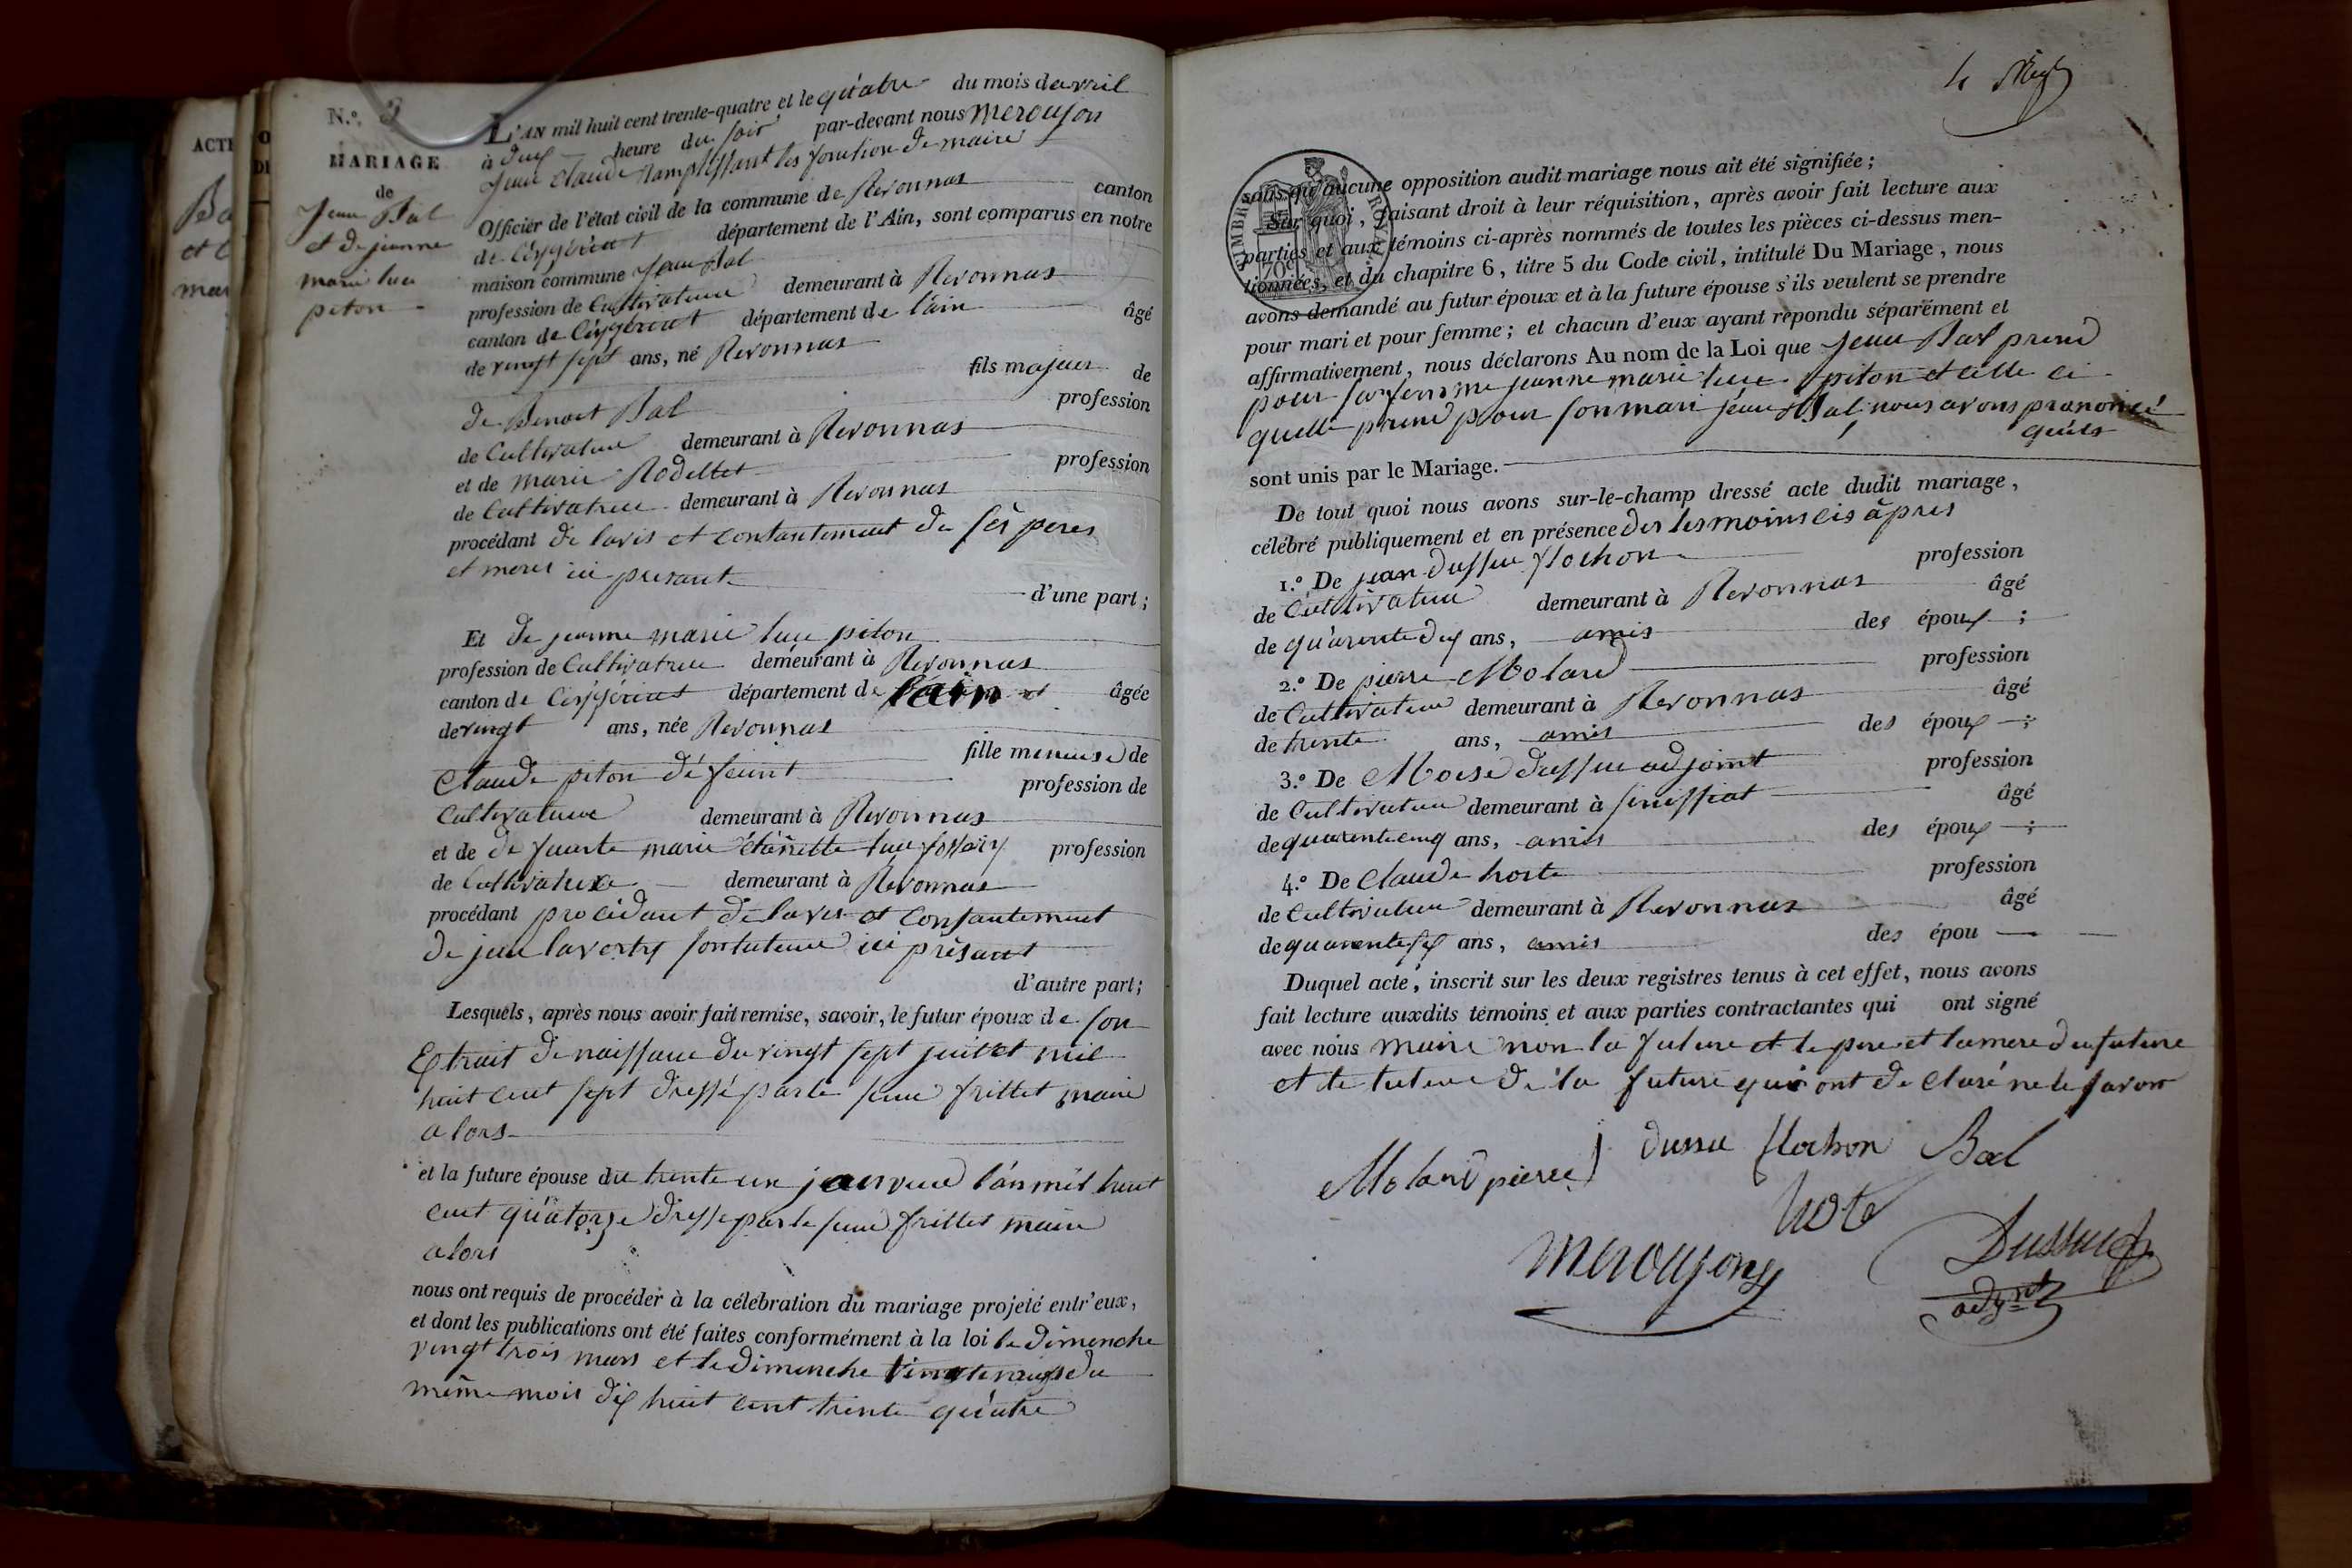 ACTE
N.º 3
MARIAGE
de
Jean Bal
et de jeanne
marie luce
piton
L'AN mil huit cent trente-quatre et le quatre du mois davril
à deux heure du soir par-devant nous merouyon
Jean claude ramplissant les fonction de maire
Officier de l'état civil de la commune de Revonnas canton
de Ceyzériat département de l'Ain, sont comparus en notre
maison commune Jean Bal
profession de Cultivateur demeurant à Revonnas
canton de Ceyzériat département de lain âgé
de vingt sept ans, né Revonnas
fils majeur de
de Benoit Bal profession
de Cultivateur demeurant à Revonnas
et de marie Rodettet profession
de Cultivatrice demeurant à Revonnas
procédant de lavis et contantement de ses peres
et meres ici presant d'une part;
Et de jeanne marie luce piton
profession de Cultivatrice demeurant à Revonnas
canton de Ceyzériat département de lain âgée
de vingt ans, née Revonnas
fille meneuse de
Claude piton défeunt profession de
Cultivateur demeurant à Revonnas
et de de funte marie luc profession
de Cultivatrice demeurant à Revonnas
procédant procédant de lavis et consantement
de jean son tuteur ici présant
d'autre part;
Lesquels, après nous avoir fait remise, savoir, le futur époux de son
Extrait de naissance du vingt sept juillet mil
huit cent sept dressé par le sieur frillet maire
alors
et la future épouse du trente un janvier l'an mil huit
cent quatorze dresse par le sieur frillet maire
alors
nous ont requis de procéder à la célébration du mariage projeté entr'eux,
et dont les publications ont été faites conformément à la loi le dimenche
vingt trois mars et le dimenche du
même mois dix huit cent trente quatre
4
sans qu'aucune opposition audit mariage nous ait été signifiée;
Sur quoi, faisant droit à leur réquisition, après avoir fait lecture aux
parties et aux témoins ci-après nommés de toutes les pièces ci-dessus men-
tionnées, et du chapitre 6, titre 5 du Code civil, intitulé Du Mariage, nous
avons demandé au futur époux et à la future épouse s'ils veulent se prendre
pour mari et pour femme; et chacun d'eux ayant répondu séparément et
affirmativement, nous déclarons Au nom de la Loi que Jean Bal prend
pour sa femme jeanne marie luce piton et celle ci
quelle prend pour son mari jean Bal, nous avons prononcé
quils
sont unis par le Mariage.
De tout quoi nous avons sur-le-champ dressé acte dudit mariage,
célébré publiquement et en présence des tesmoins cis âpres
1.º De jean dussue flochon profession
de Cultivateur demeurant à Revonnas âgé
de quarente dex ans, amis des époux;
2.º De pierre Molard profession
de Cultivateur demeurant à Revonnas âgé
de trente ans, amis des époux;
3.º De Moise dussue adjoint profession
de Cultivateur demeurant à âgé
de quarente cinq ans, amis des époux;
4.º De Claude hoste profession
de Cultivateur demeurant à Revonnas âgé
de quarente six ans, amis des épou
Duquel acte, inscrit sur les deux registres tenus à cet effet, nous avons
fait lecture auxdits témoins et aux parties contractantes qui ont signé
avec nous maire non la future et le pere et la mere du future
et le tuteur de la future qui ont de claré ne le savoir
Molard pierre dussue flochon Bal
hote
merouyon Dussue
adjoint